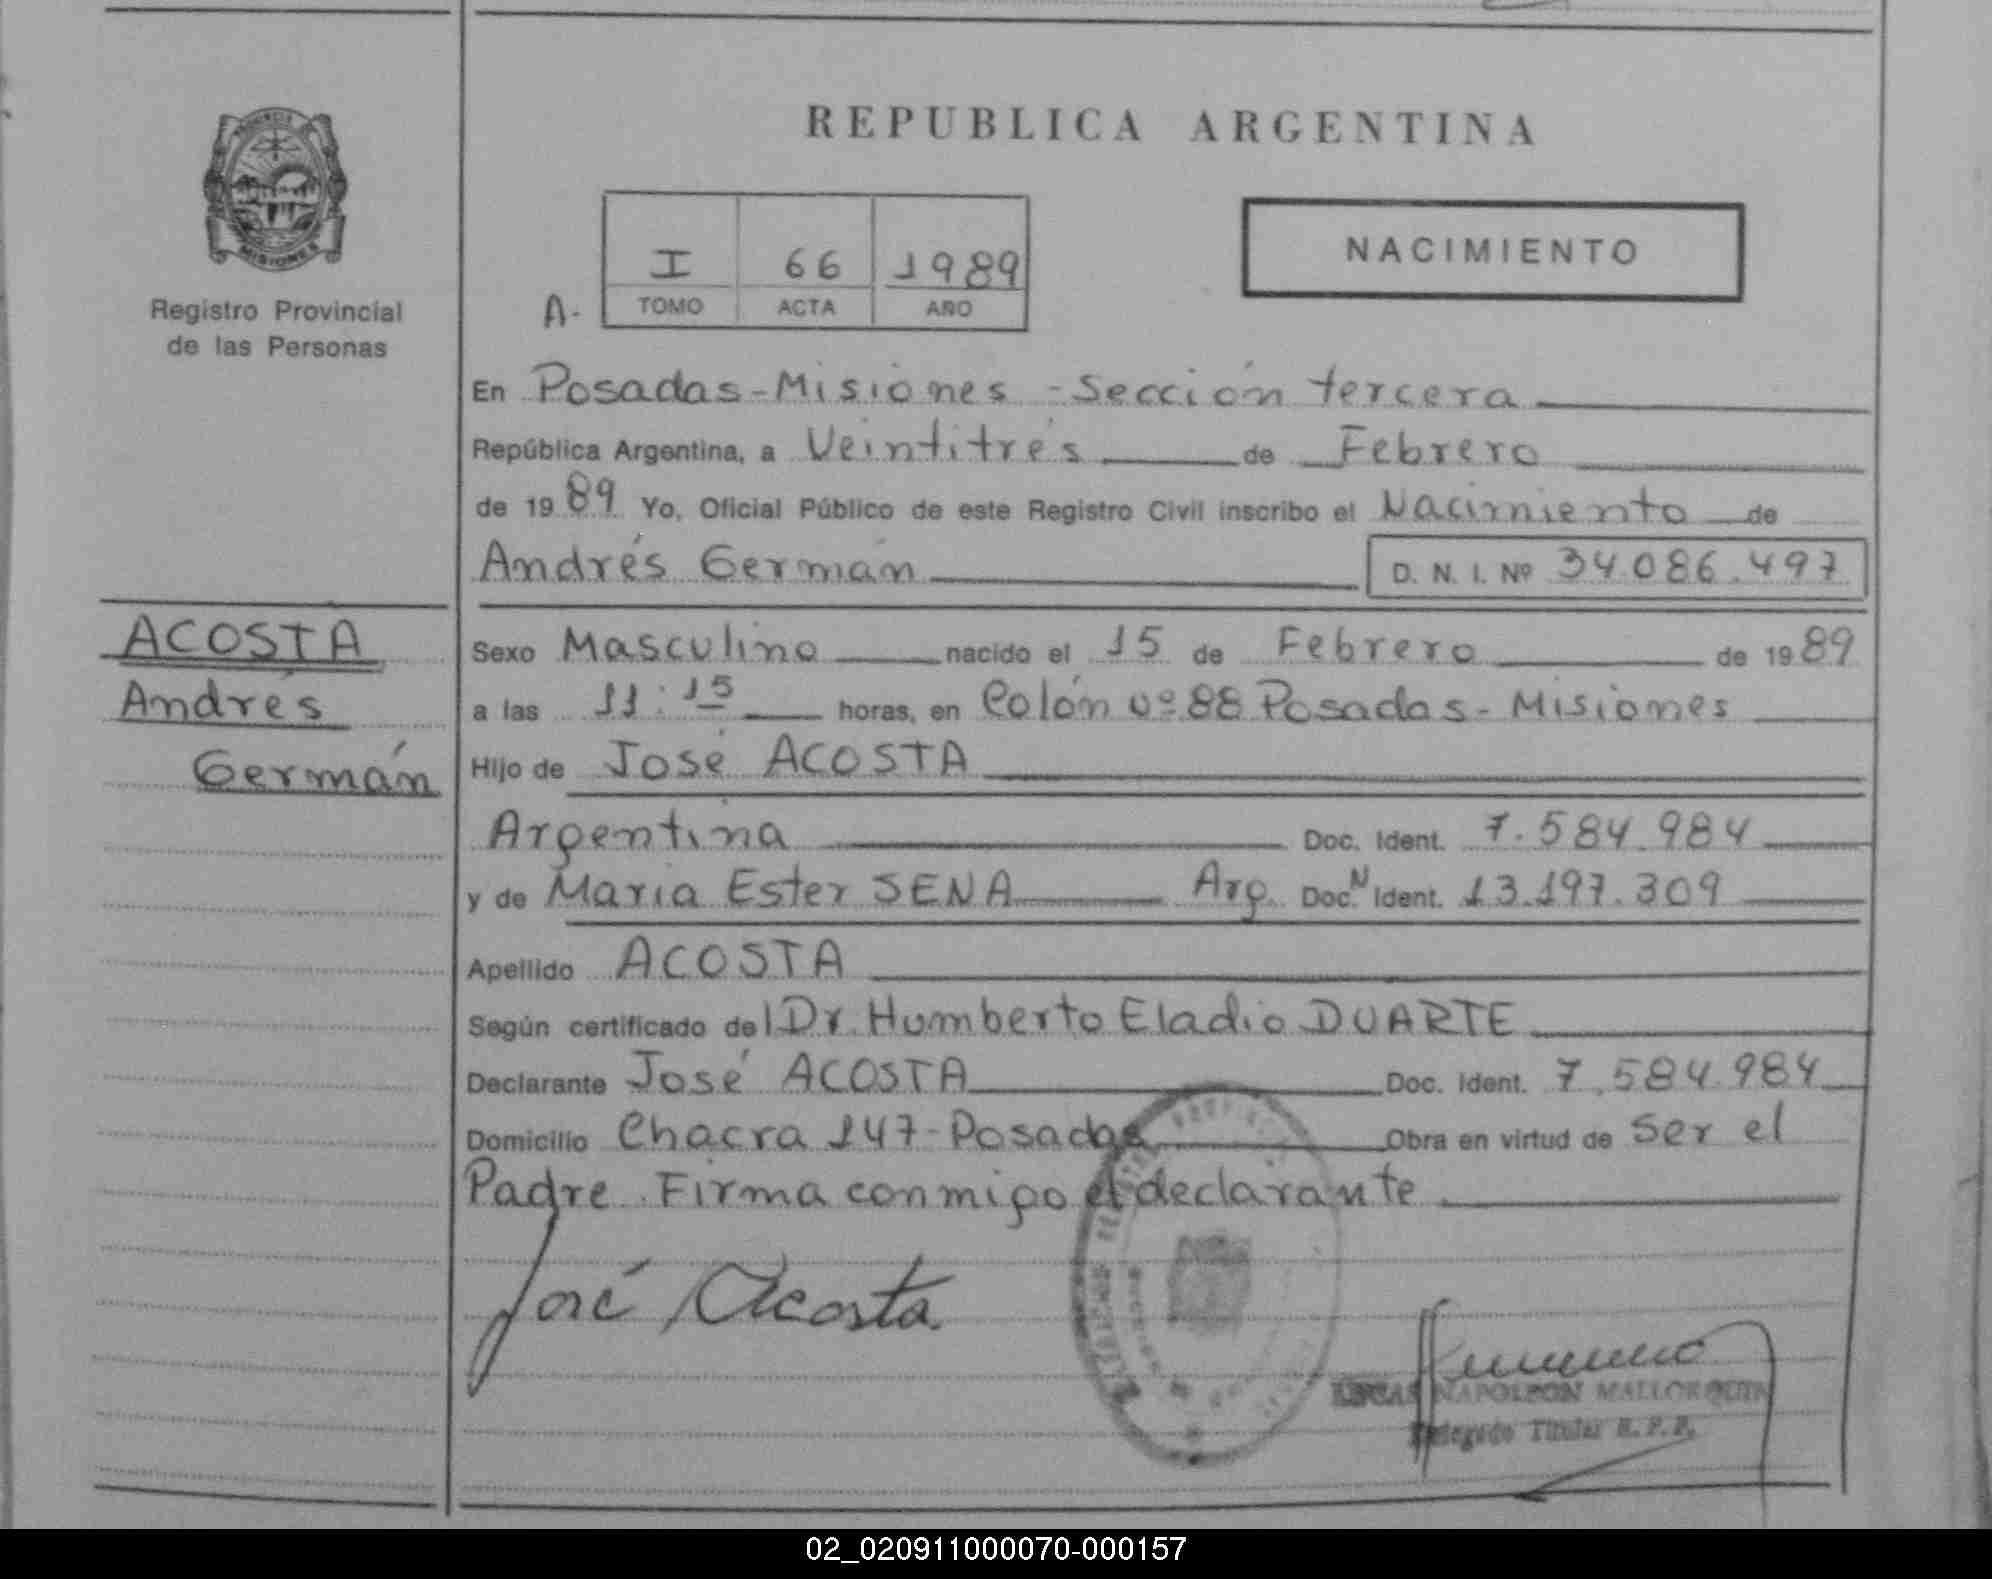 REPUBLICA ARGENTINA
PROVINCIA
MISIONES
Registro Provincial
de las Personas
I 66 1989
A- TOMO ACTA AÑO
NACIMIENTO
En Posadas-Misiones - Sección tercera
República Argentina, a Veintitrés de Febrero
de 1989 Yo, Oficial Público de este Registro Civil inscribo el Nacimiento de
Andrés Germán D. N. I. Nº 34.086.497
ACOSTA
Andrés
Germán
Sexo Masculino nacido el 15 de Febrero de 1989
a las 11:15 horas, en Colón Nº 88 Posadas - Misiones
Hijo de José ACOSTA
Argentina Doc. Ident. 7.584.984
y de María Ester SENA Arg. Doc. N Ident. 13.197.309
Apellido ACOSTA
Según certificado del Dr. Humberto Eladio DUARTE
Declarante José ACOSTA Doc. Ident. 7.584.984
Domicilio Chacra 147 - Posadas Obra en virtud de Ser el
Padre. Firma conmigo el declarante
José Acosta
LUCAS NAPOLEON MALLORQUIN
Delegado Titular R. P. P.
02_020911000070-000157